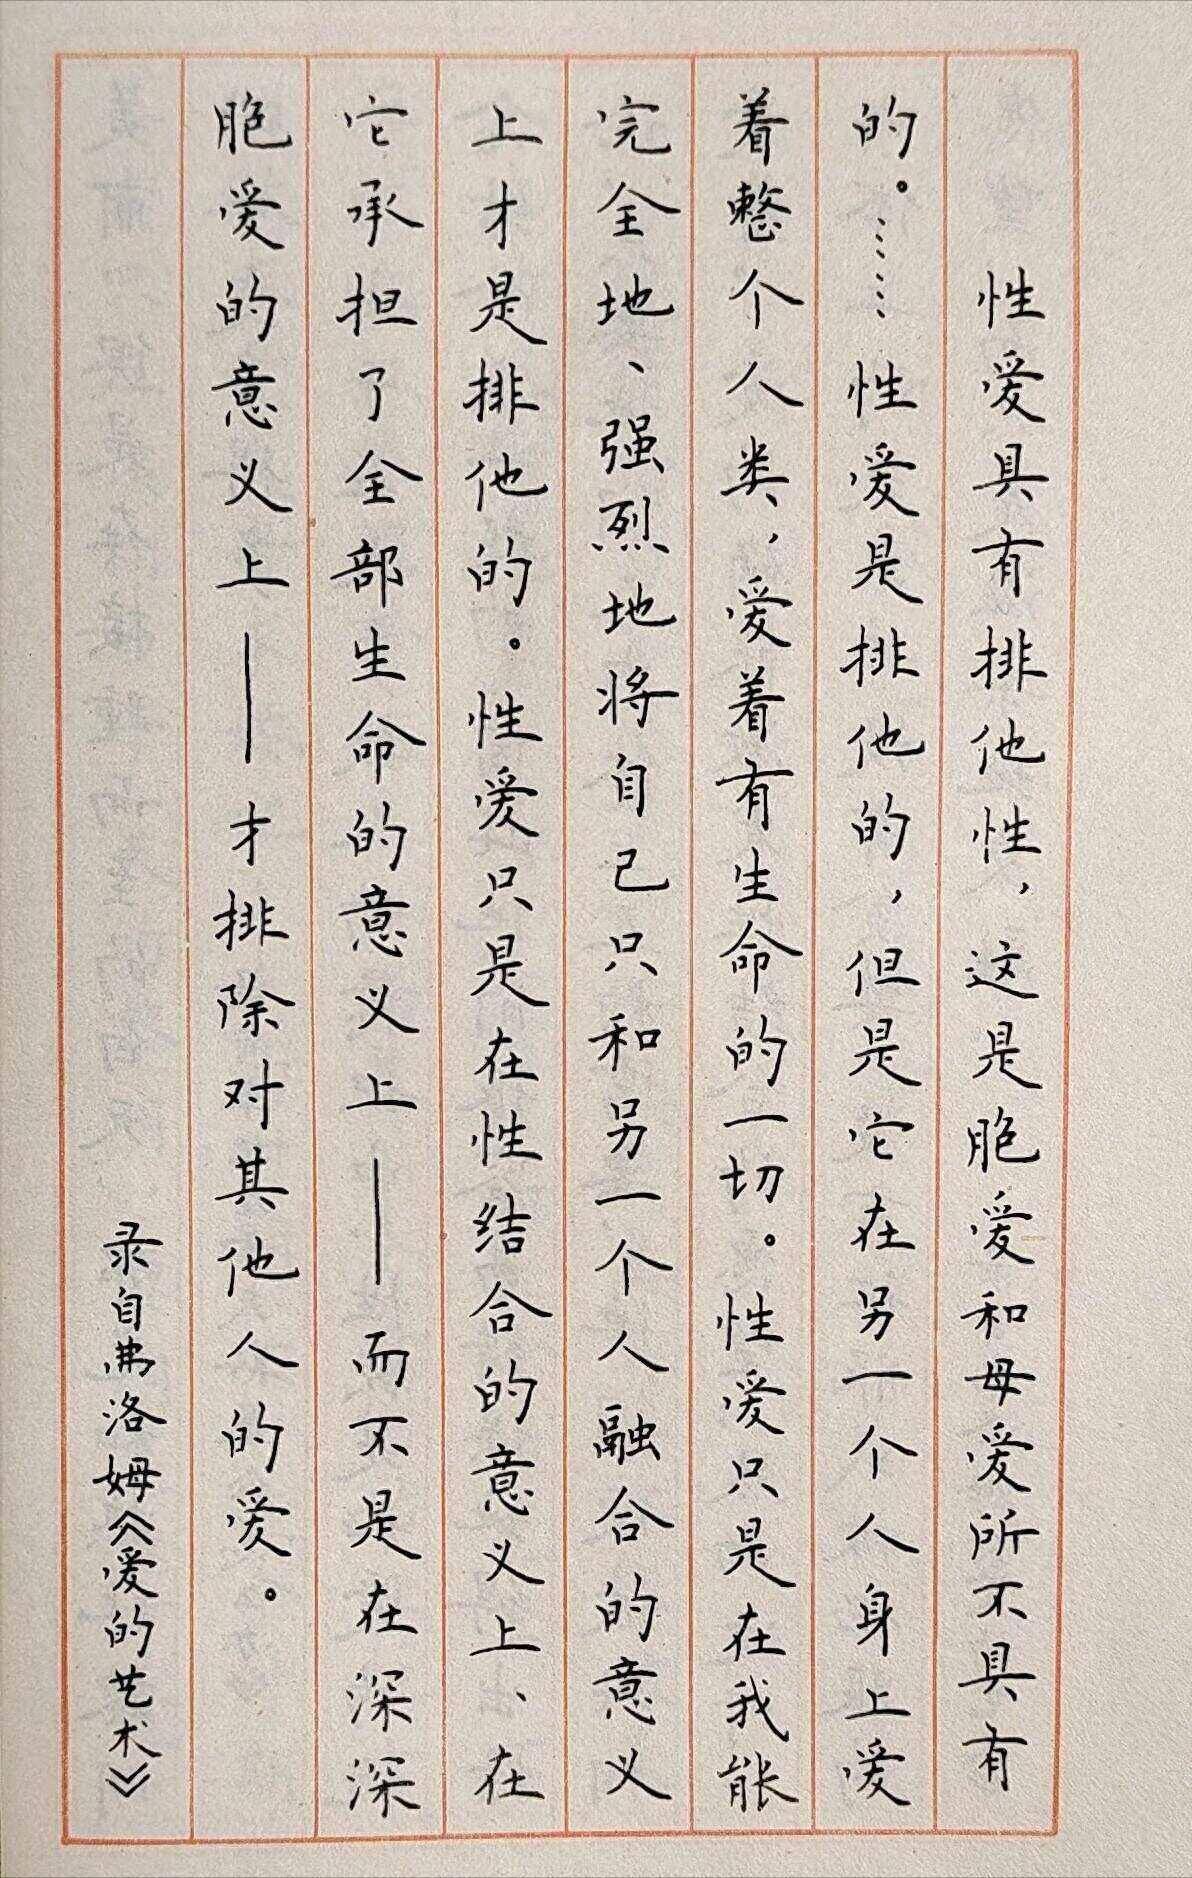 性爱具有排他性，这是胞爱和母爱所不具有
的。……性爱是排他的，但是它在另一个人身上爱
着整个人类，爱着有生命的一切。性爱只是在我能
完全地、强烈地将自己只和另一个人融合的意义
上才是排他的。性爱只是在性结合的意义上、在
它承担了全部生命的意义上——而不是在深深
胞爱的意义上——才排除对其他人的爱。
录自弗洛姆《爱的艺术》